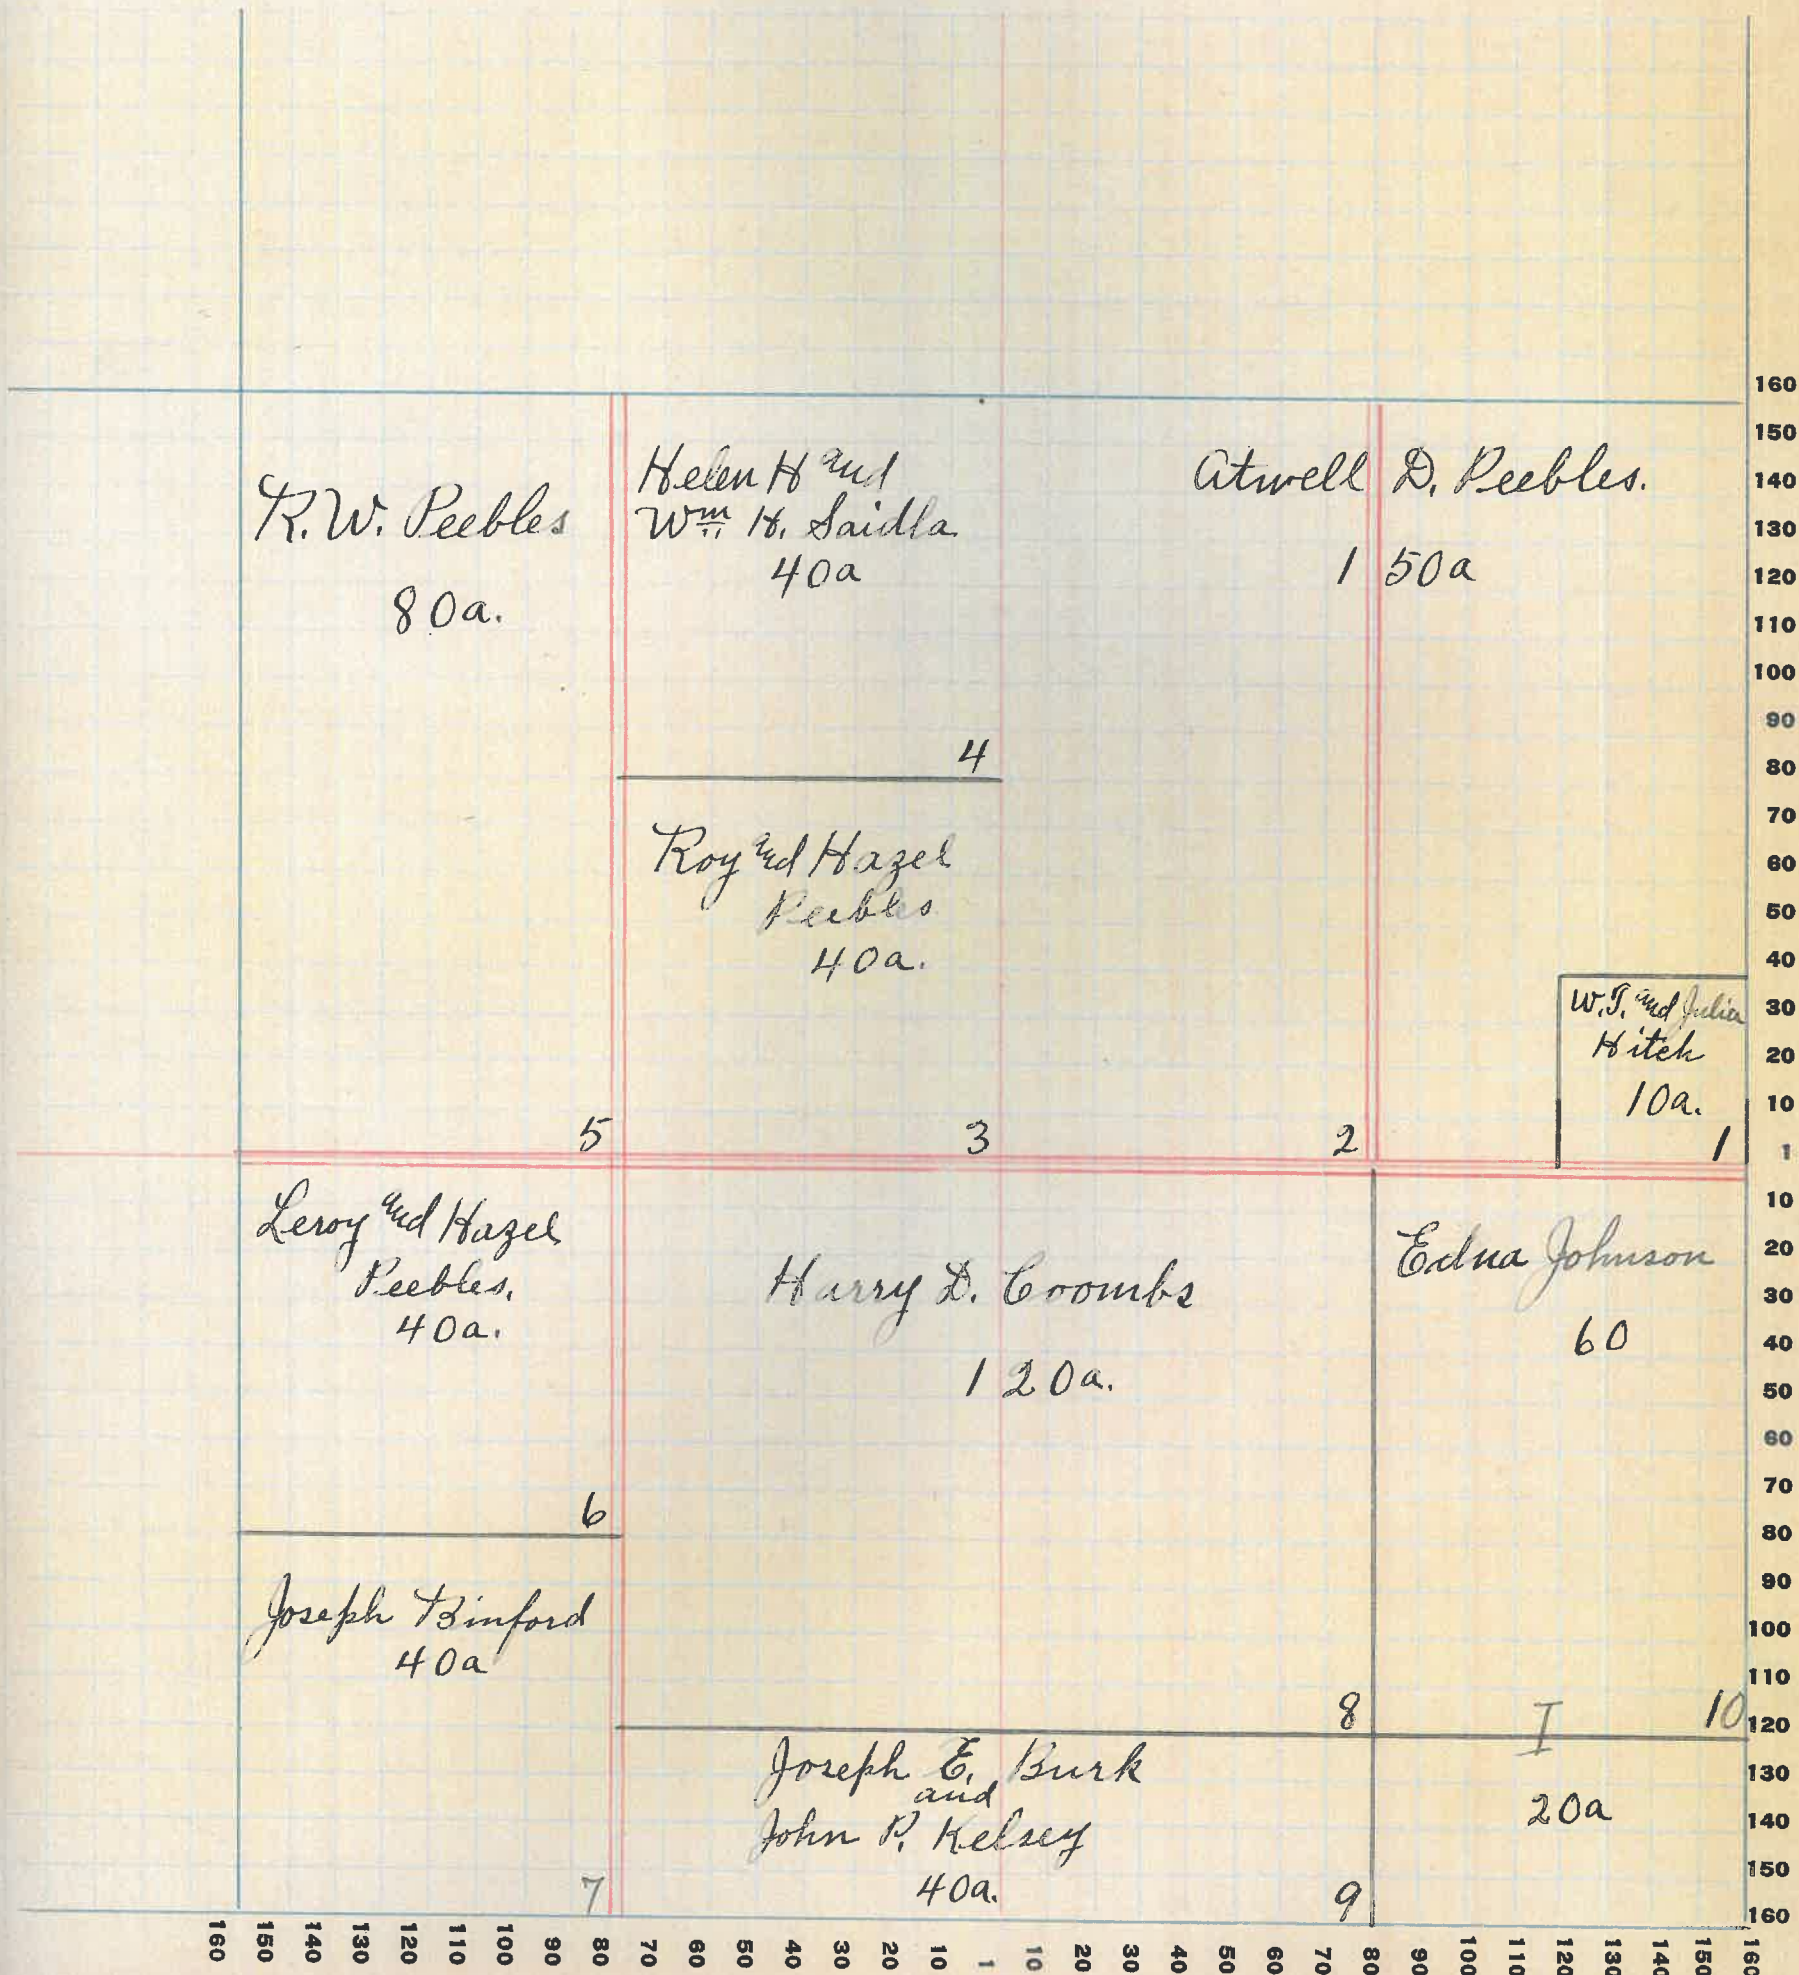 R. W. Peebles
80a.
Helen H and
Wm H. Saidla
40a
4
Atwell D. Peebles.
150a
Roy and Hazel
Peebles
40a.
W.T. and Julia
Hitch
10a.
1
5
3
2
Leroy and Hazel
Peebles.
40a.
6
Harry D. Coombs
120a.
8
Edna Johnson
60
10
I
20a
Joseph Binford
40a
7
Joseph E. Burk
and
John P. Kelsey
40a.
9
160
150
140
130
120
110
100
90
80
70
60
50
40
30
20
10
1
10
20
30
40
50
60
70
80
90
100
110
120
130
140
150
160
160 150 140 130 120 110 100 90 80 70 60 50 40 30 20 10 1 10 20 30 40 50 60 70 80 90 100 110 120 130 140 150 160